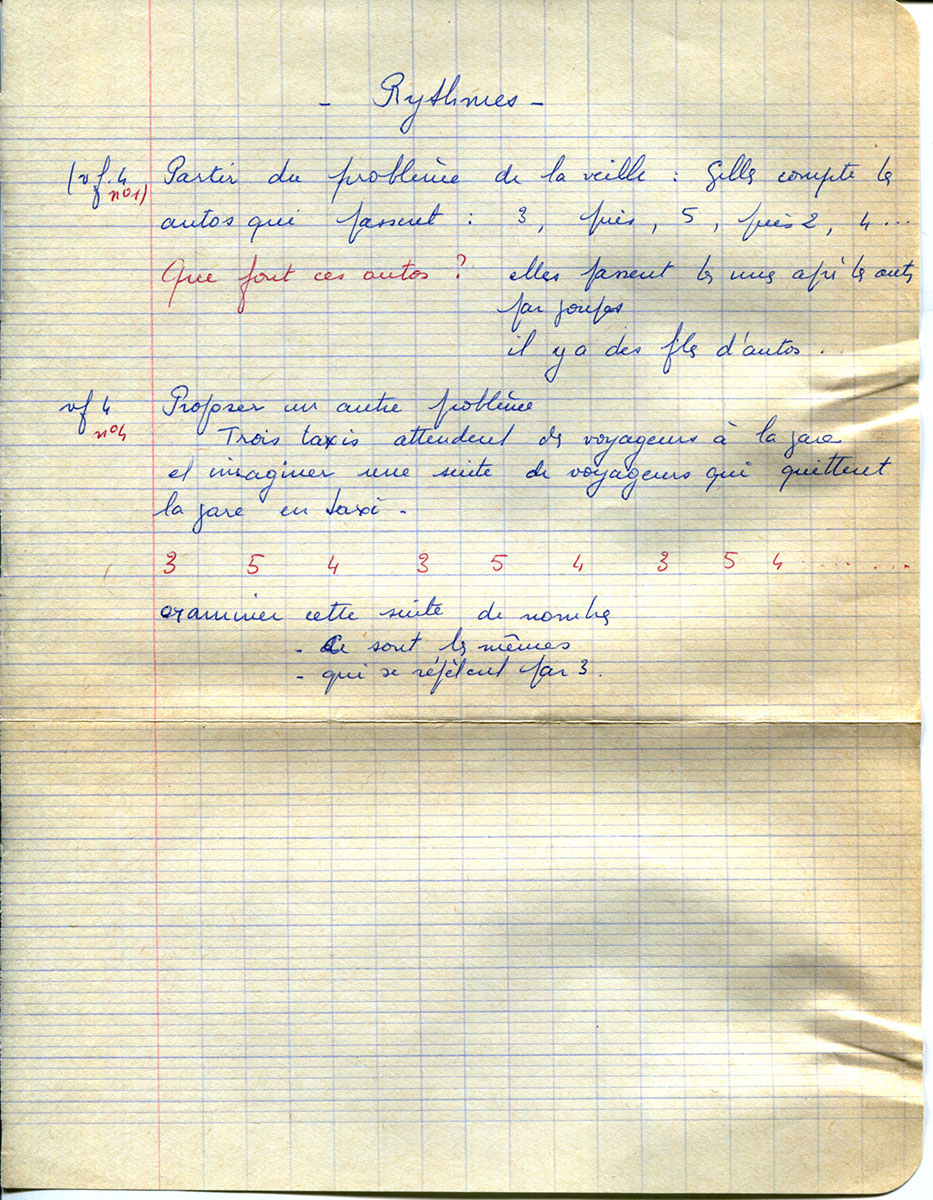 - Rythmes -
(vf. 4 Partir du problème de la veille : Gilles compte les
n°1)
autos qui passent : 3, puis, 5, puis 2, 4 ...
Que font ces autos ? elles passent les unes après les autres
par groupes
il y a des files d'autos.
vf 4 Proposer un autre problème
n°4
Trois taxis attendent des voyageurs à la gare
et imaginer une suite de voyageurs qui quittent
la gare en taxi -
3 5 4 3 5 4 3 5 4 .........
examiner cette suite de nombres
- Ce sont les mêmes
- qui se répètent par 3.